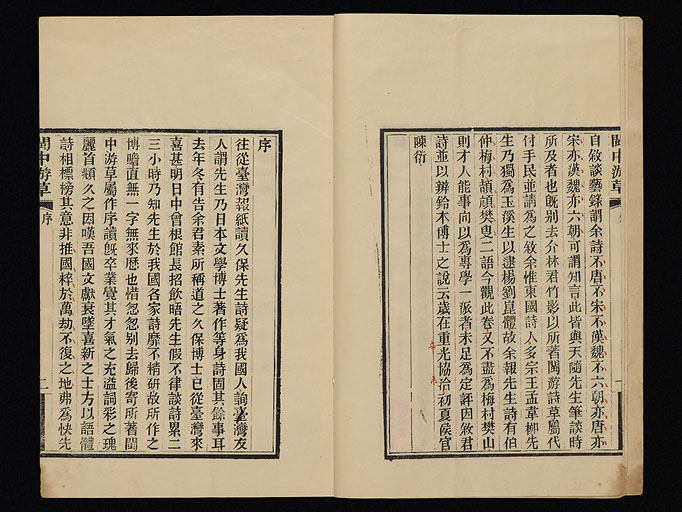 閩中游草
自敘談藝錄謂余詩不唐不宋不漢魏不六朝亦唐亦
宋亦漢魏亦六朝可謂知言此皆與天隨先生筆談時
所及者也旣别去介林君竹影以所著閩游詩草屬代
付手民並請為之敘余惟東國詩人多宗王孟韋柳先
生乃獨為玉溪生以逮楊劉崑體故余報先生詩有伯
仲梅村讀頡樊叟二語今觀此卷又不盡為梅村樊山
則才人能事向以為專學一派者未足為定評因敘君
詩並以辨鈴木博士之說云歲在重光協洽初夏侯官
陳衍
序
往從臺灣報紙讀久保先生詩疑為我國人詢臺灣友
人謂先生乃日本文學博士著作等身詩固其餘事耳
去年冬有告余君素所稱道之久保博士已從臺灣來
喜甚明日中曾根館長招飲晤先生假不律談詩累二
三小時乃知先生於我國各家詩靡不精研故所作之
博贍直無一字無來歷也惜忽忽别去歸後寄所著閩
中游草屬作序讀旣卒業覺其才氣之充溢詞彩之瑰
麗首頫久之因嘆吾國文獻衰墜喜新之士方以語體
詩相標榜其意非推國粹於萬劫不復之地弗為快先
閩中游草
序
二